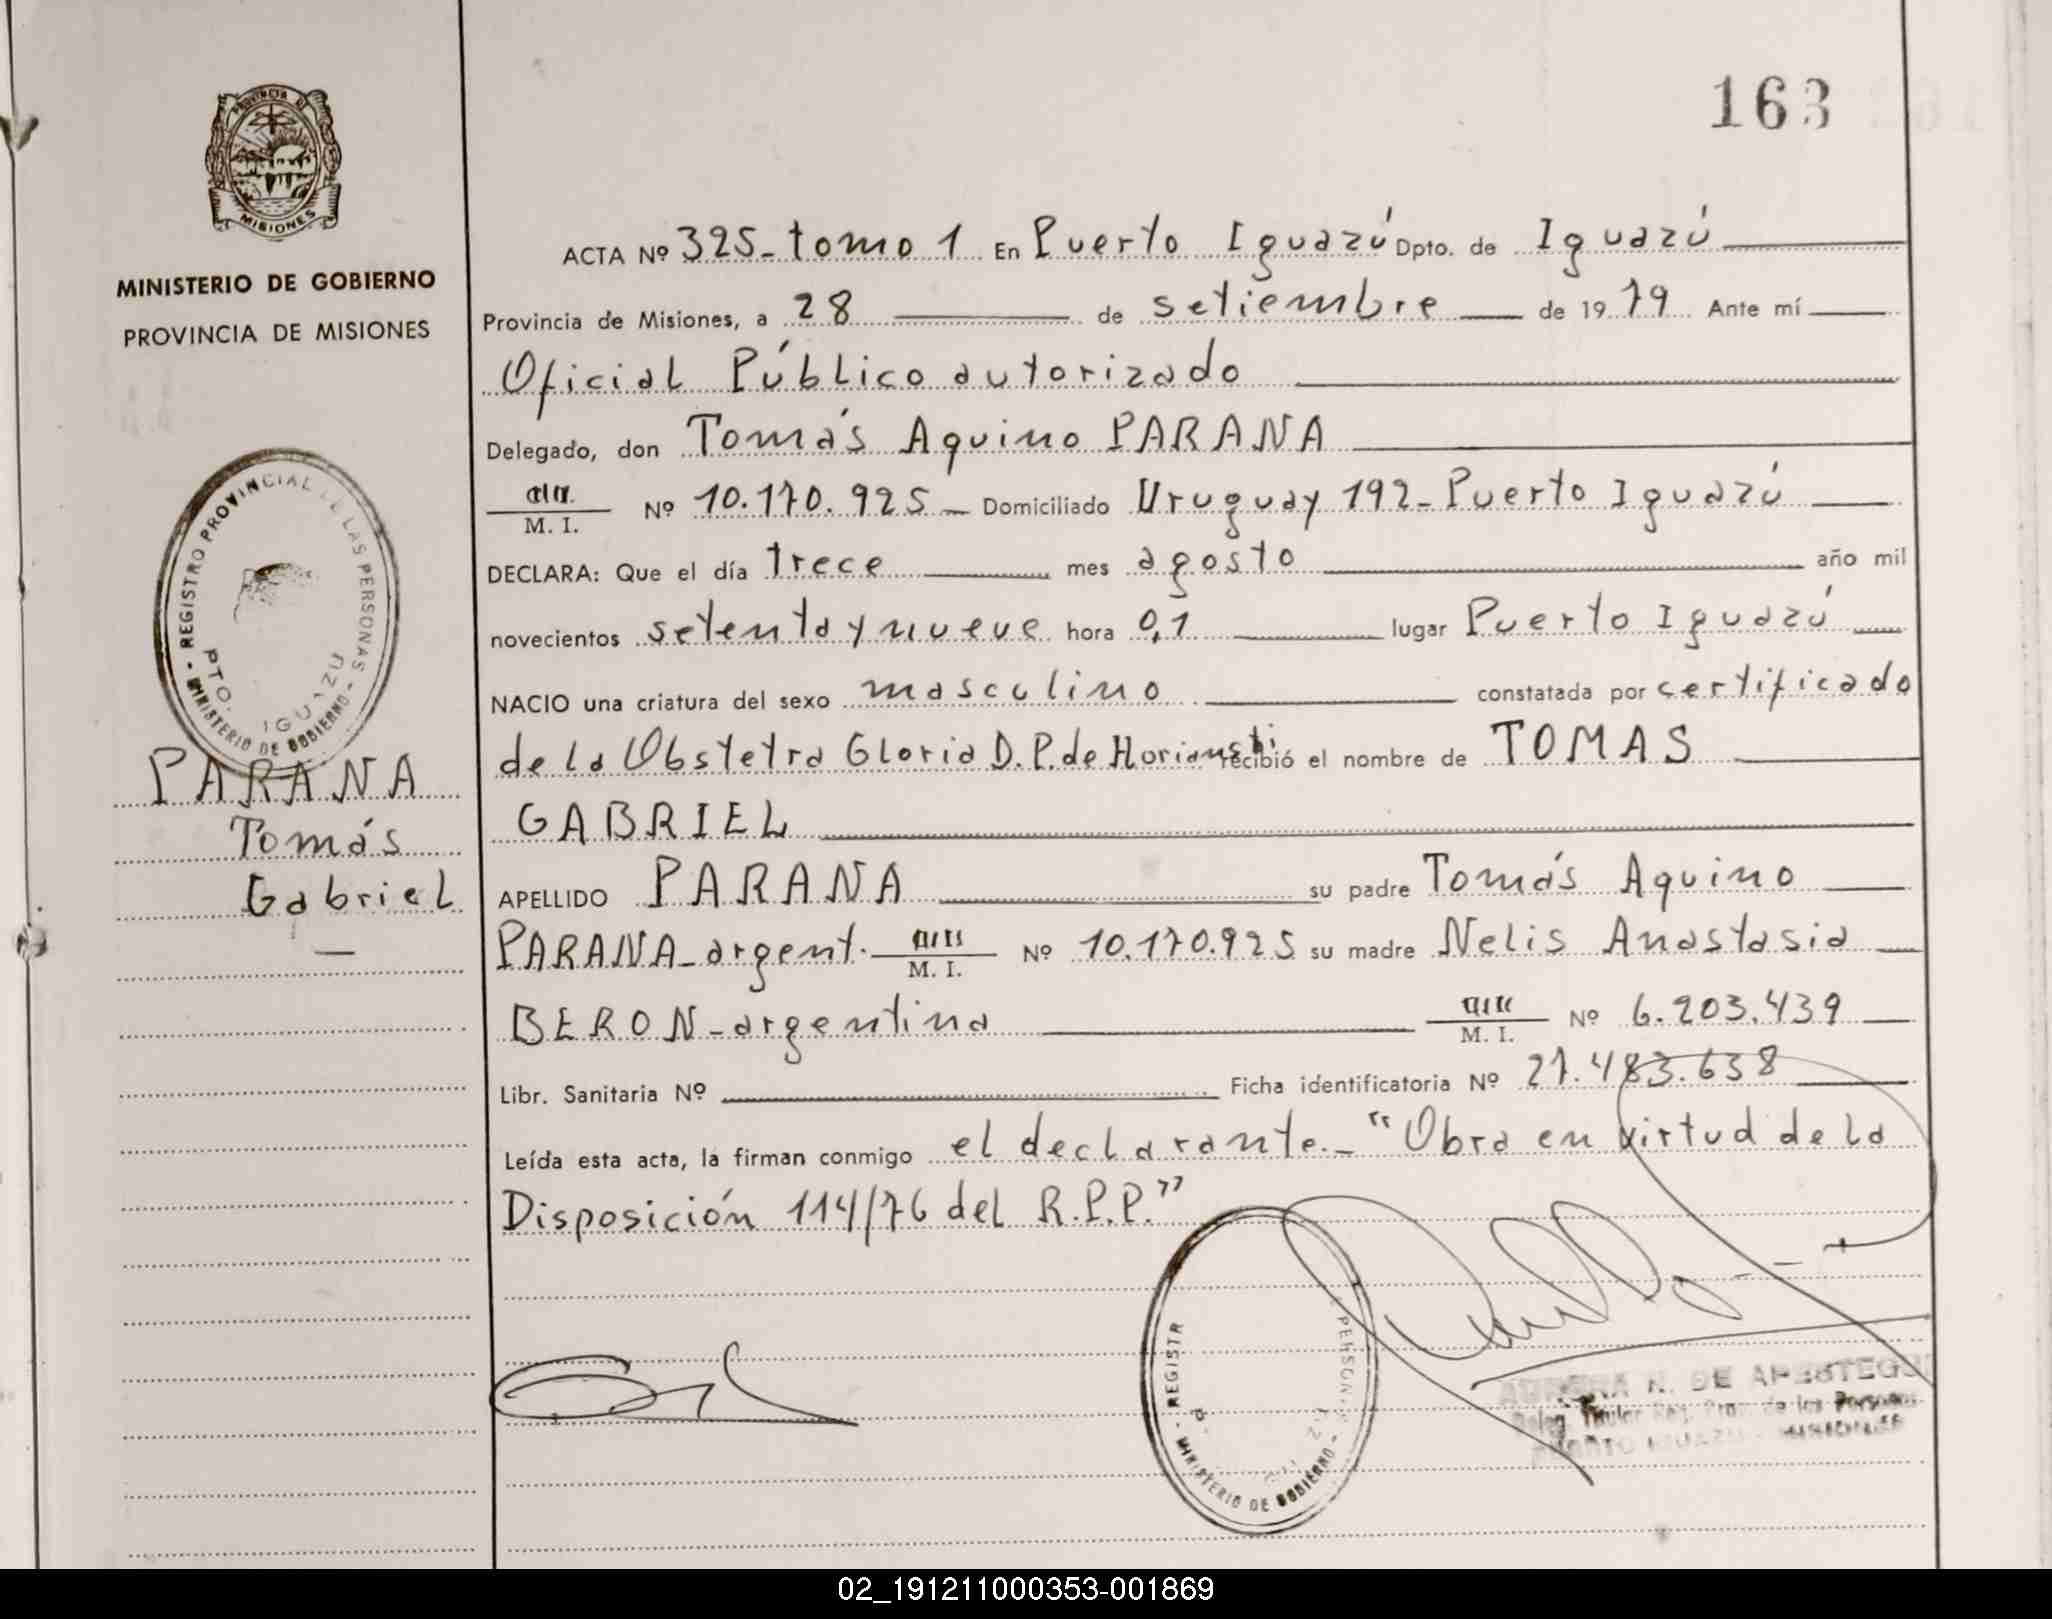 163
PROVINCIA DE
MISIONES
MINISTERIO DE GOBIERNO
PROVINCIA DE MISIONES
REGISTRO PROVINCIAL DE LAS PERSONAS
PTO. IGUAZU
MINISTERIO DE GOBIERNO
PARANA
Tomás
Gabriel
ACTA Nº 325-tomo 1 En Puerto Iguazú Dpto. de Iguazú
Provincia de Misiones, a 28 de setiembre de 1979 Ante mí
Oficial Público autorizado
Delegado, don Tomás Aquino PARANA
M. I. Nº 10.170.925 - Domiciliado Uruguay 192-Puerto Iguazú
DECLARA: Que el día trece mes agosto año mil
novecientos setenta y nueve hora 0,1 lugar Puerto Iguazú
NACIO una criatura del sexo masculino constatada por certificado
de la Obstetra Gloria D. P. de recibió el nombre de TOMAS
GABRIEL
APELLIDO PARANA su padre Tomás Aquino
PARANA-argent. M. I. Nº 10.170.925 su madre Nelis Anastasia
BERON-argentina M. I. Nº 6.203.439
Libr. Sanitaria Nº Ficha identificatoria Nº 27.483.638
Leída esta acta, la firman conmigo el declarante.- "Obra en virtud de la
Disposición 114/76 del R.P.P."
REGISTR PERSONA
MINISTERIO DE GOBIERNO
DE APESTEGUI
Deleg. Titular Reg. Prov. de las Personas
PUERTO IGUAZU - MISIONES
02_191211000353-001869